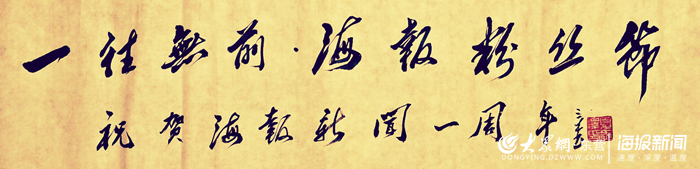 一往無前·海報粉丝節
祝贺海報新聞一周年
大众網·东营 海报新闻
DONGYING.DZWWW.COM 速度·深度·温度